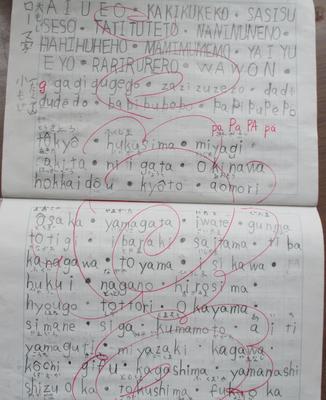 ローマ字
A I U E O ・ KAKIKUKEKO ・ SASISU
SESO ・ TATITUTETO ・ NANINUNENO
HAHIHUHEHO ・ MAMIMUMEMO ・ YAIYU
EYO ・ RARIRURERO ・ WAWON ・
gadigugego ・ zazizuzezo ・ dadi
dudedo ・ babibubebo ・ papipupepo
pa Pa PA pa
tôkyô ・ hukusima ・ miyagi
akita ・ niigata ・ Okinawa
hokkaidôu ・ kyôto ・ aomori
ôsaka ・ yamagata ・ iwate ・ gunma
totigi ・ ibaraki ・ saitama ・ tiba
kanagawa ・ toyama ・ isikawa
hukui ・ nagano ・ hirosima
hyougo ・ tottori ・ Okayama
simane ・ siga ・ kumamoto ・ aiti
yamaguti ・ miyazaki ・ kagawa
kôchi gifu ・ kagashima ・ yamanashi
shizuoka ・ tokushima ・ fukuoka